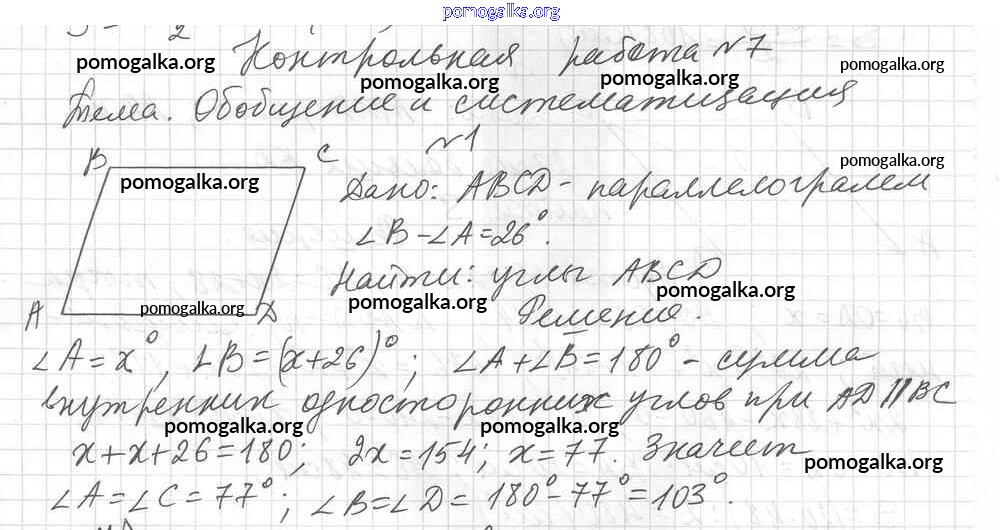 pomogalka.org
2
Контрольная работа №7
pomogalka.org pomogalka.org pomogalka.org pomogalka.org
Тема. Обобщение и систематизация
№1
B C
pomogalka.org pomogalka.org
Дано: ABCD - параллелограмм
∠B - ∠A = 26°.
Найти: углы ABCD
pomogalka.org pomogalka.org pomogalka.org
A D
Решение.
∠A = x°, ∠B = (x+26)°; ∠A + ∠B = 180° - сумма
внутренних односторонних углов при AD || BC
pomogalka.org pomogalka.org
x + x + 26 = 180; 2x = 154; x = 77. Значит
pomogalka.org
∠A = ∠C = 77°; ∠B = ∠D = 180° - 77° = 103°.